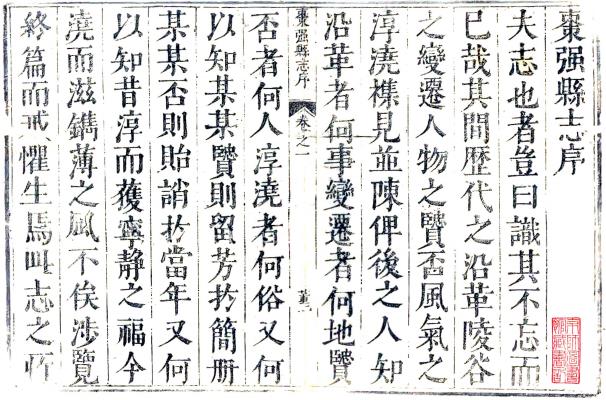 棗强縣志序
夫志也者豈曰識其不忘而
已哉其間歷代之沿革陵谷
之變遷人物之賢否風氣之
淳澆襍見並陳俾後之人知
沿革者何事變遷者何地賢
棗强縣志序 卷之一
否者何人淳澆者何俗又何
以知某某賢則留芳扵簡册
某某否則貽誚扵當年又何
以知昔淳而獲寧静之福今
澆而滋鐫薄之風不俟涉覽
終篇而戒懼生焉此志之所